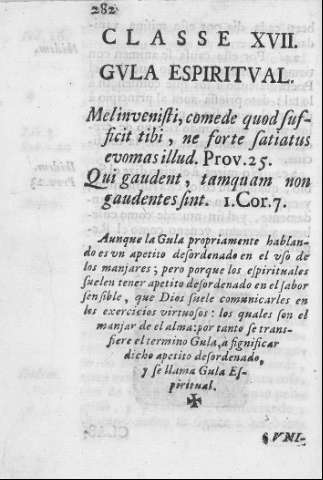 282
CLASSE XVII.
GVLA ESPIRITVAL.
Mel invenisti, comede quod suf-
ficit tibi, ne forte satiatus
evomas illud. Prov.25.
Qui gaudent, tamquam non
gaudentes sint. 1.Cor.7.
Aunque la Gula propriamente hablan-
do es vn apetito desordenado en el vso de
los manjares; pero porque los espirituales
suelen tener apetito desordenado en el sabor
sensible, que Dios suele comunicarles en
los exercicios virtuosos: los quales son el
manjar de el alma: por tanto se trans-
fiere el termino Gula, a significar
dicho apetito desordenado,
y se llama Gula Es-
piritual.
✠
§VNI-